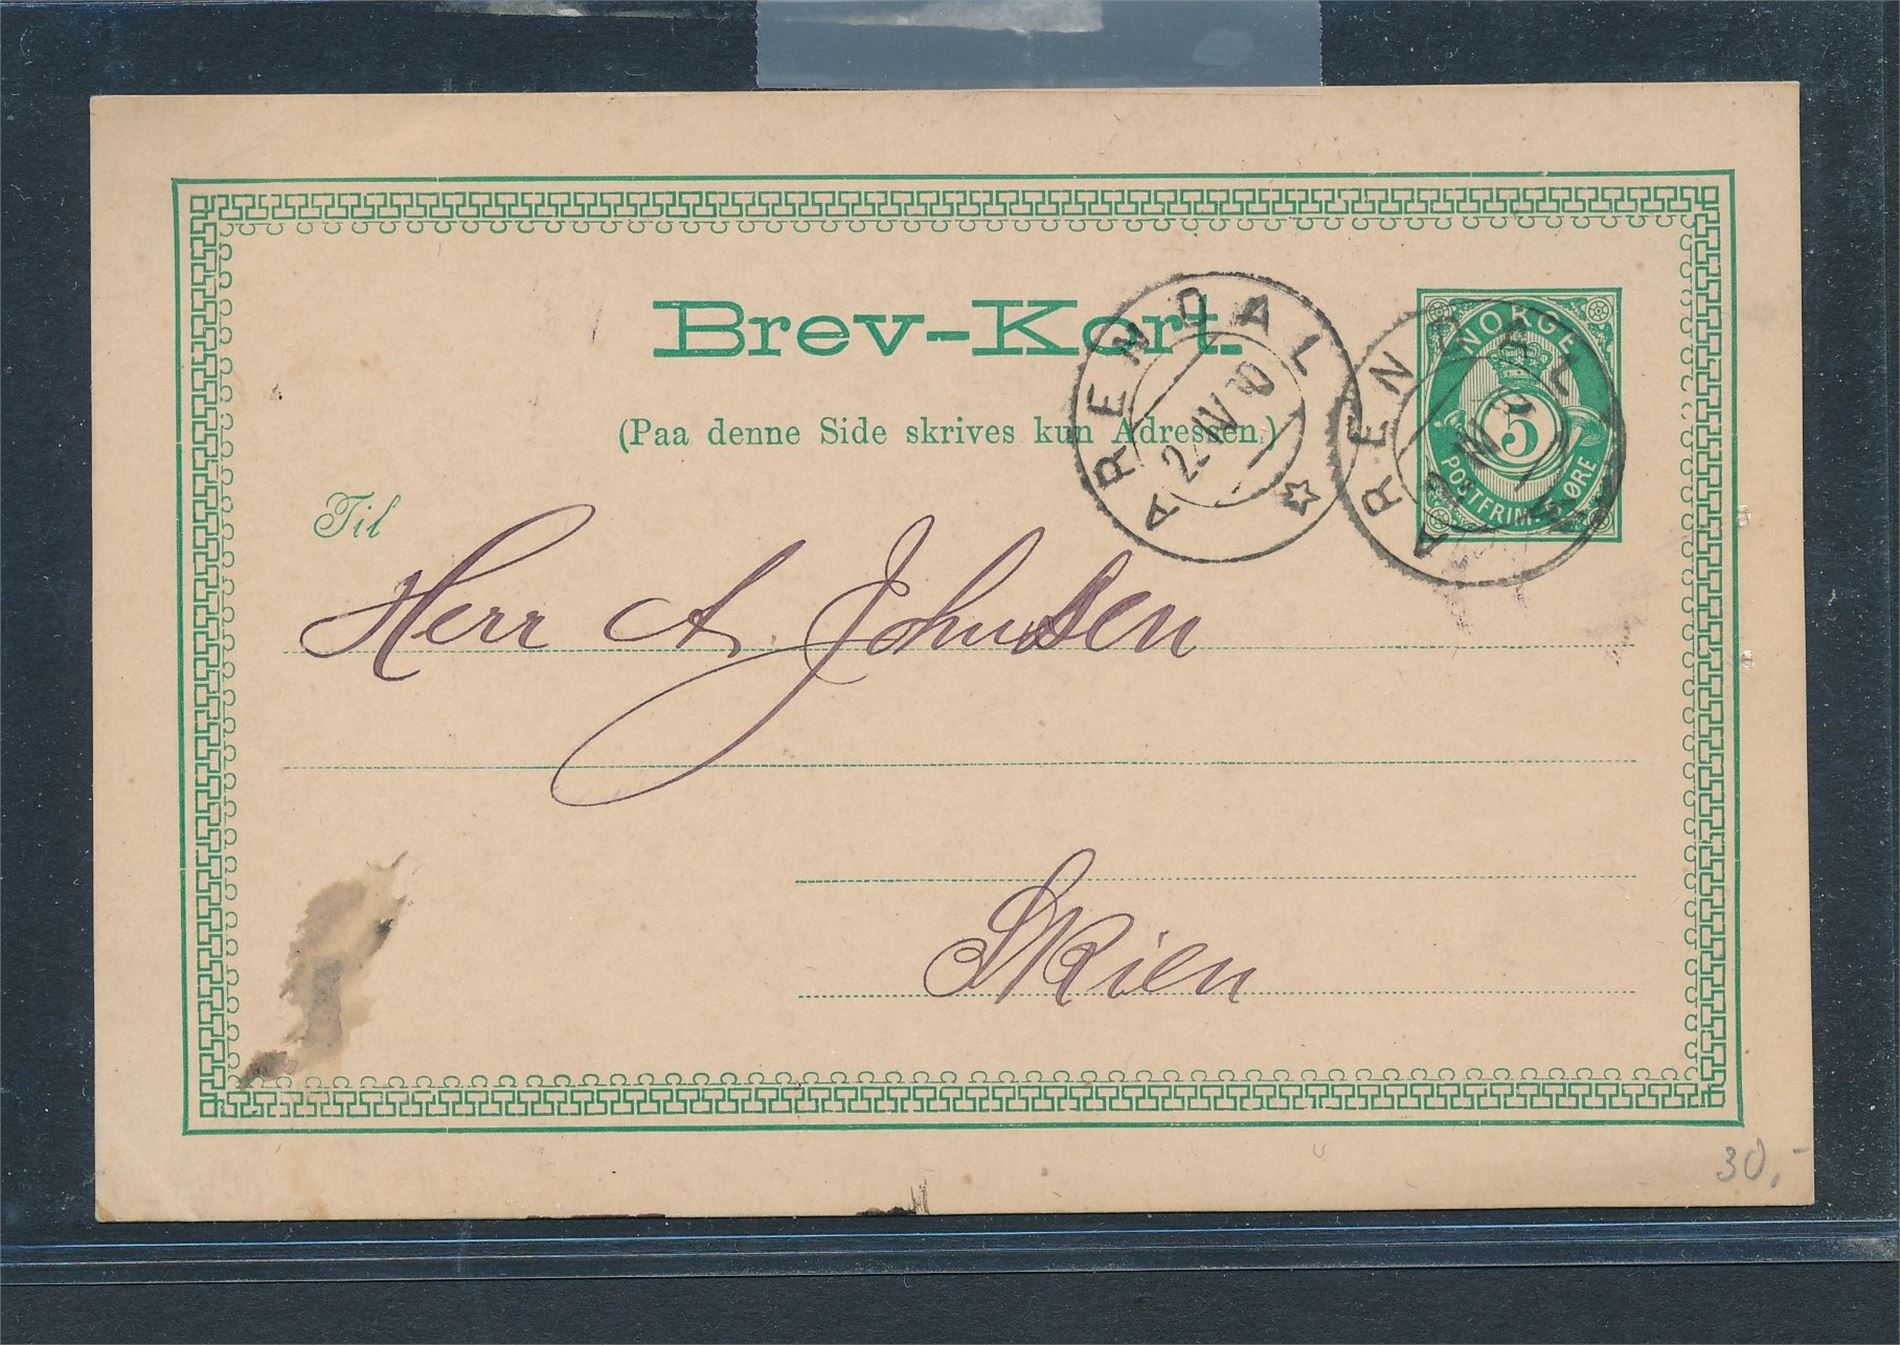 Brev-Kort.
(Paa denne Side skrives kun Adressen.)
ARENDAL
ARENDAL
NORGE
5
POSTFRIM. 5 ØRE
Til
Herr A. Johnsen
Skien
30,-